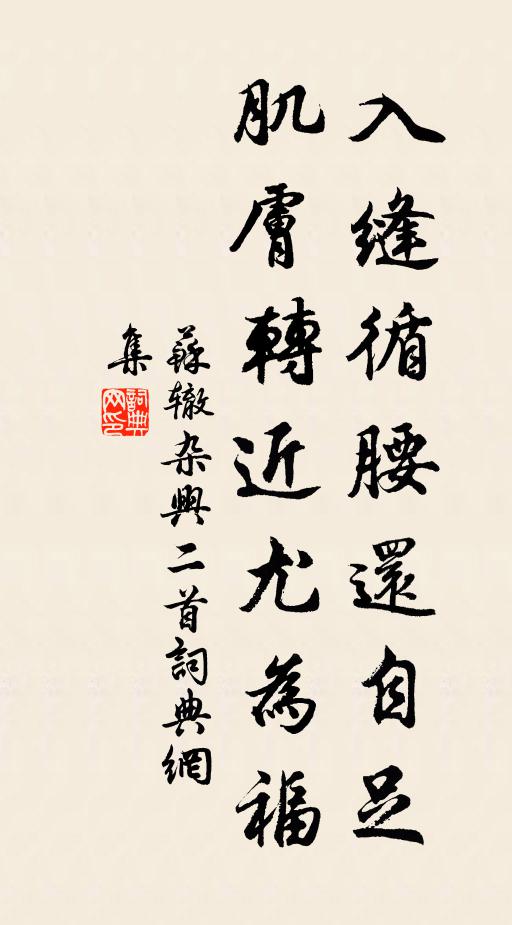 入縫循腰還自足
肌膚轉近尤為福
蘇辙杂興二首詞典網
集
詞典
网印